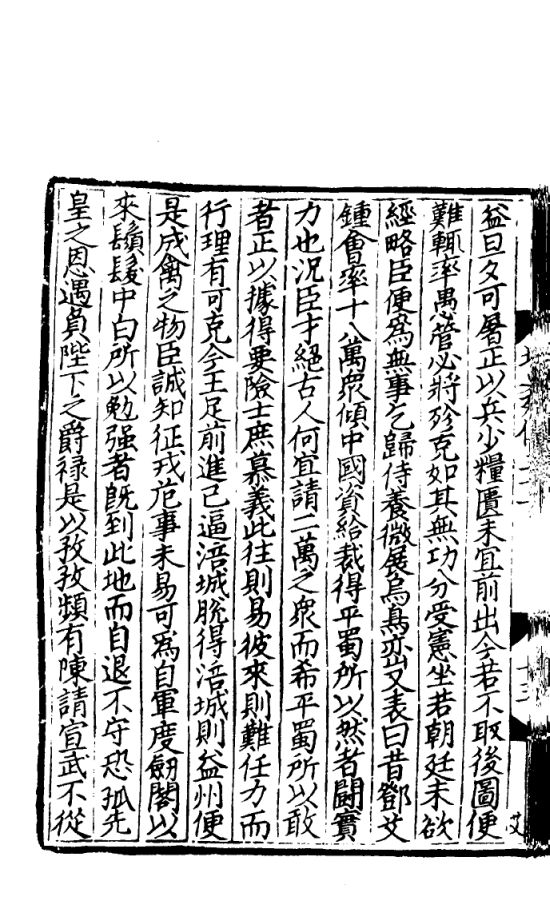 益旦夕可屠正以兵少糧匱未宜前出今若不取後圖便
難輒率愚管必將殄克如其無功分受憲坐若朝廷未欲
經略臣便為無事乞歸侍養微展烏鳥巒又表曰昔鄧艾
鍾會率十八萬衆傾中國資給裁得平蜀所以然者鬪實
力也況臣才絕古人何宜請二萬之衆而希平蜀所以敢
者正以據得要險士庶慕義此往則易彼來則難任力而
行理有可克今王足前進已逼涪城脫得涪城則益州便
是成禽之物臣誠知征戎危事未易可為自軍度劒閣以
來鬚髮中白所以勉强者既到此地而自退不守恐孤先
皇之恩遇負陛下之爵禄是以孜孜頻有陳請宣武不從